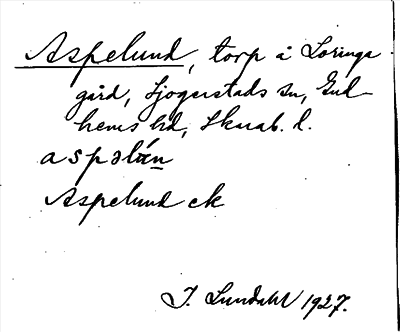 Aspelund, torp å Loringa
gård, Sjogerstads sn, Gud-
hems hd, Skarab. l.
aspəlùn
Aspelund ek
J. Lundahl 1927.